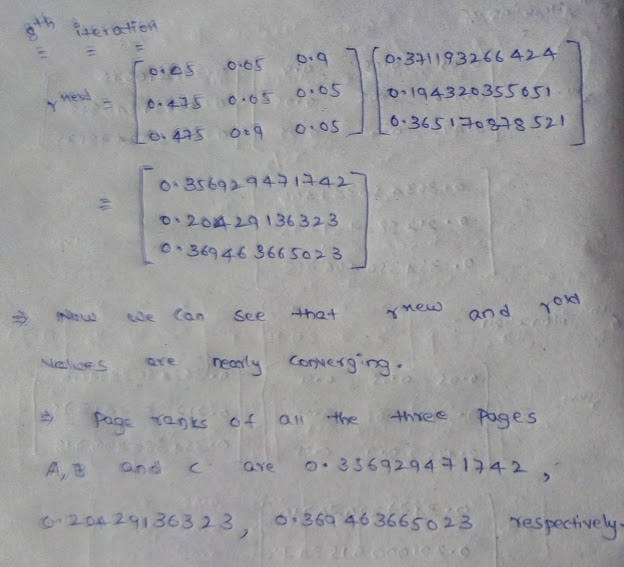 8th iteration
rnew = [0.05 0.05 0.9] [0.371193266424]
[0.475 0.05 0.05] [0.194320355051]
[0.475 0.9 0.05] [0.365170878521]
= [0.356929471742]
[0.20429136323]
[0.369463665023]
⇒ Now we can see that rnew and rold
Values are nearly converging.
⇒ Page ranks of all the three pages
A, B and C are 0.356929471742,
0.20429136323, 0.369463665023 respectively.